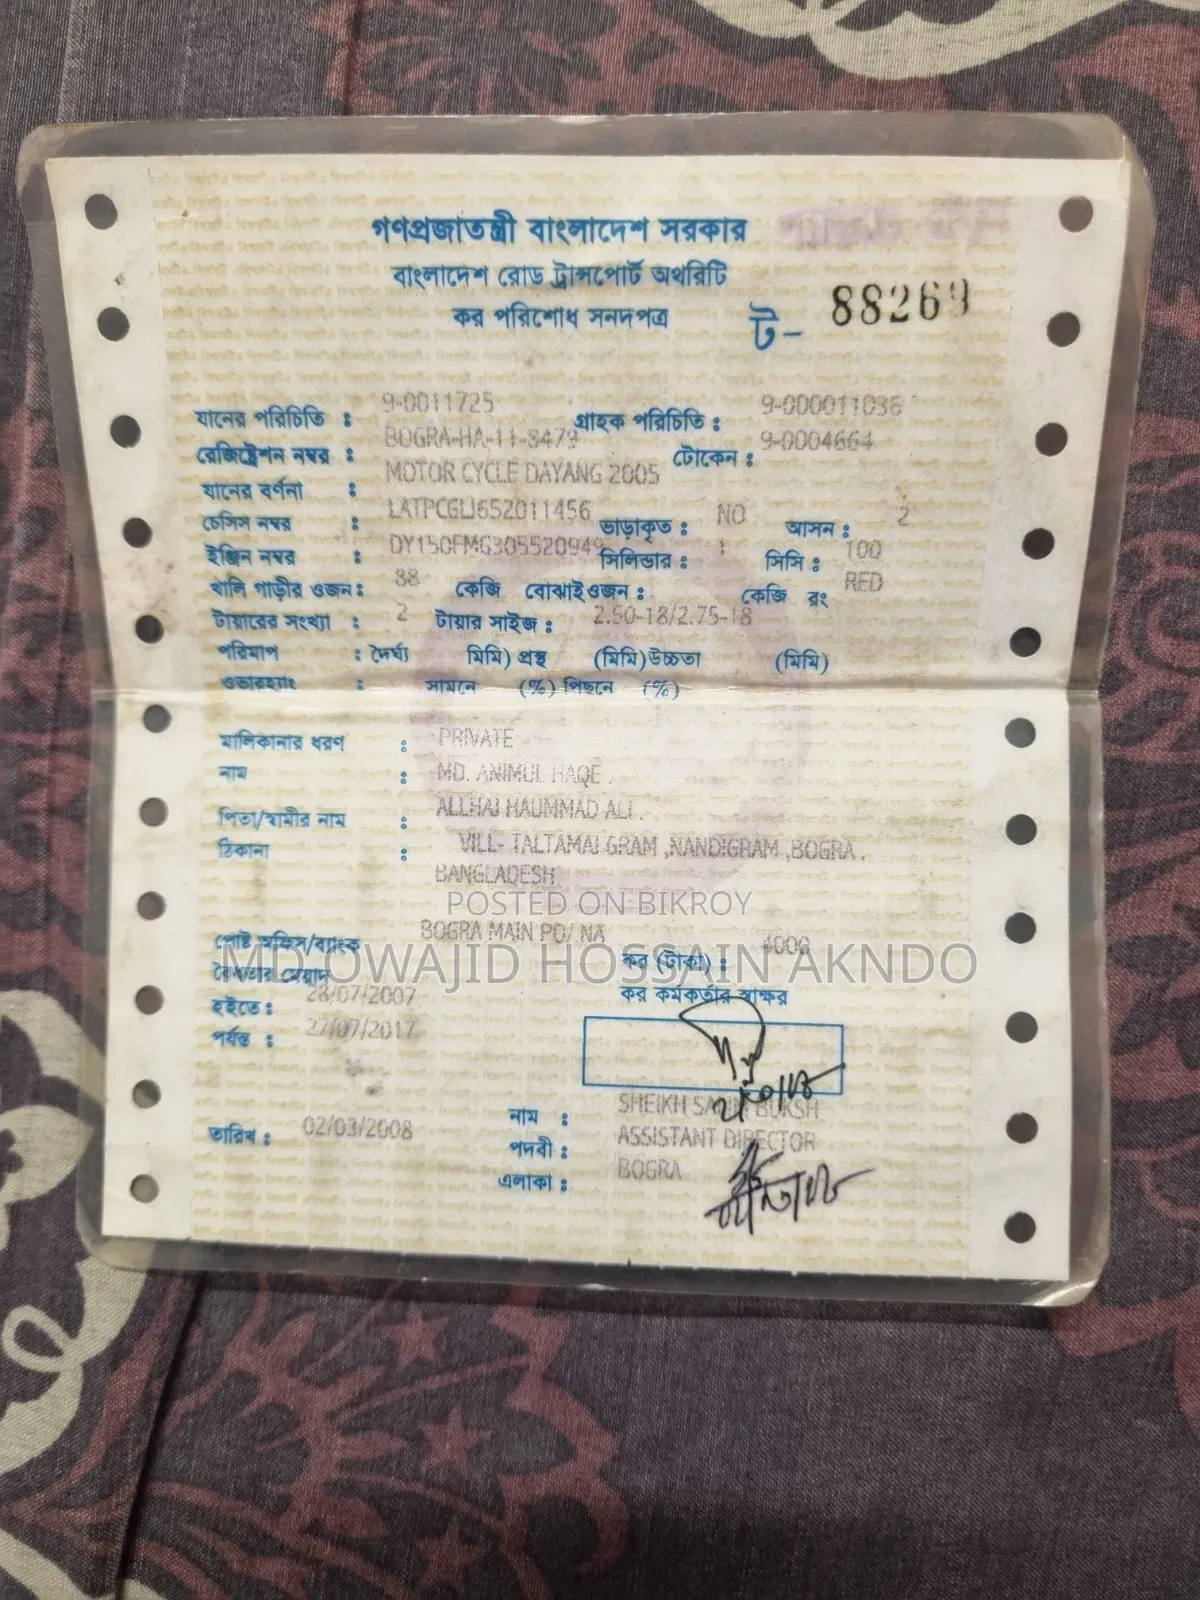 গণপ্রজাতন্ত্রী বাংলাদেশ সরকার
বাংলাদেশ রোড ট্রান্সপোর্ট অথরিটি
কর পরিশোধ সনদপত্র
ট- 88269
যানের পরিচিতি : 9-0011725 গ্রাহক পরিচিতি : 9-000011036
রেজিষ্ট্রেশন নম্বর : BOGRA-HA-11-8479 টোকেন : 9-0004664
যানের বর্ণনা : MOTOR CYCLE DAYANG 2005
চেসিস নম্বর : LATPCGLJ652011456 ভাড়াকৃত : NO আসন : 2
ইঞ্জিন নম্বর : DY150FMG305520949 সিলিন্ডার : 1 সিসি : 100
খালি গাড়ীর ওজন : 88 কেজি বোঝাই ওজন : কেজি রং RED
টায়ারের সংখ্যা : 2 টায়ার সাইজ : 2.50-18/2.75-18
পরিমাপ : দৈর্ঘ্য মিমি) প্রস্থ (মিমি) উচ্চতা (মিমি)
ওভারহ্যাং : সামনে (%) পিছনে (%)
মালিকানার ধরণ : PRIVATE
নাম : MD. ANIMUL HAQE .
পিতা/স্বামীর নাম : ALLHAJ HAUMMAD ALI .
ঠিকানা : VILL- TALTAMAJGRAM ,NANDIGRAM ,BOGRA .
BANGLADESH
POSTED ON BIKROY
পোষ্ট অফিস/ব্যাংক BOGRA MAIN PO/ NA কর (টাকা) : 4000
MD OWAJID HOSSAIN AKNDO
বৈধতার মেয়াদ
হইতে : 28/07/2007 কর কর্মকর্তার স্বাক্ষর
পর্যন্ত : 27/07/2017
নাম : SHEIKH BUKSH
তারিখ : 02/03/2008 পদবী : ASSISTANT DIRECTOR
এলাকা : BOGRA